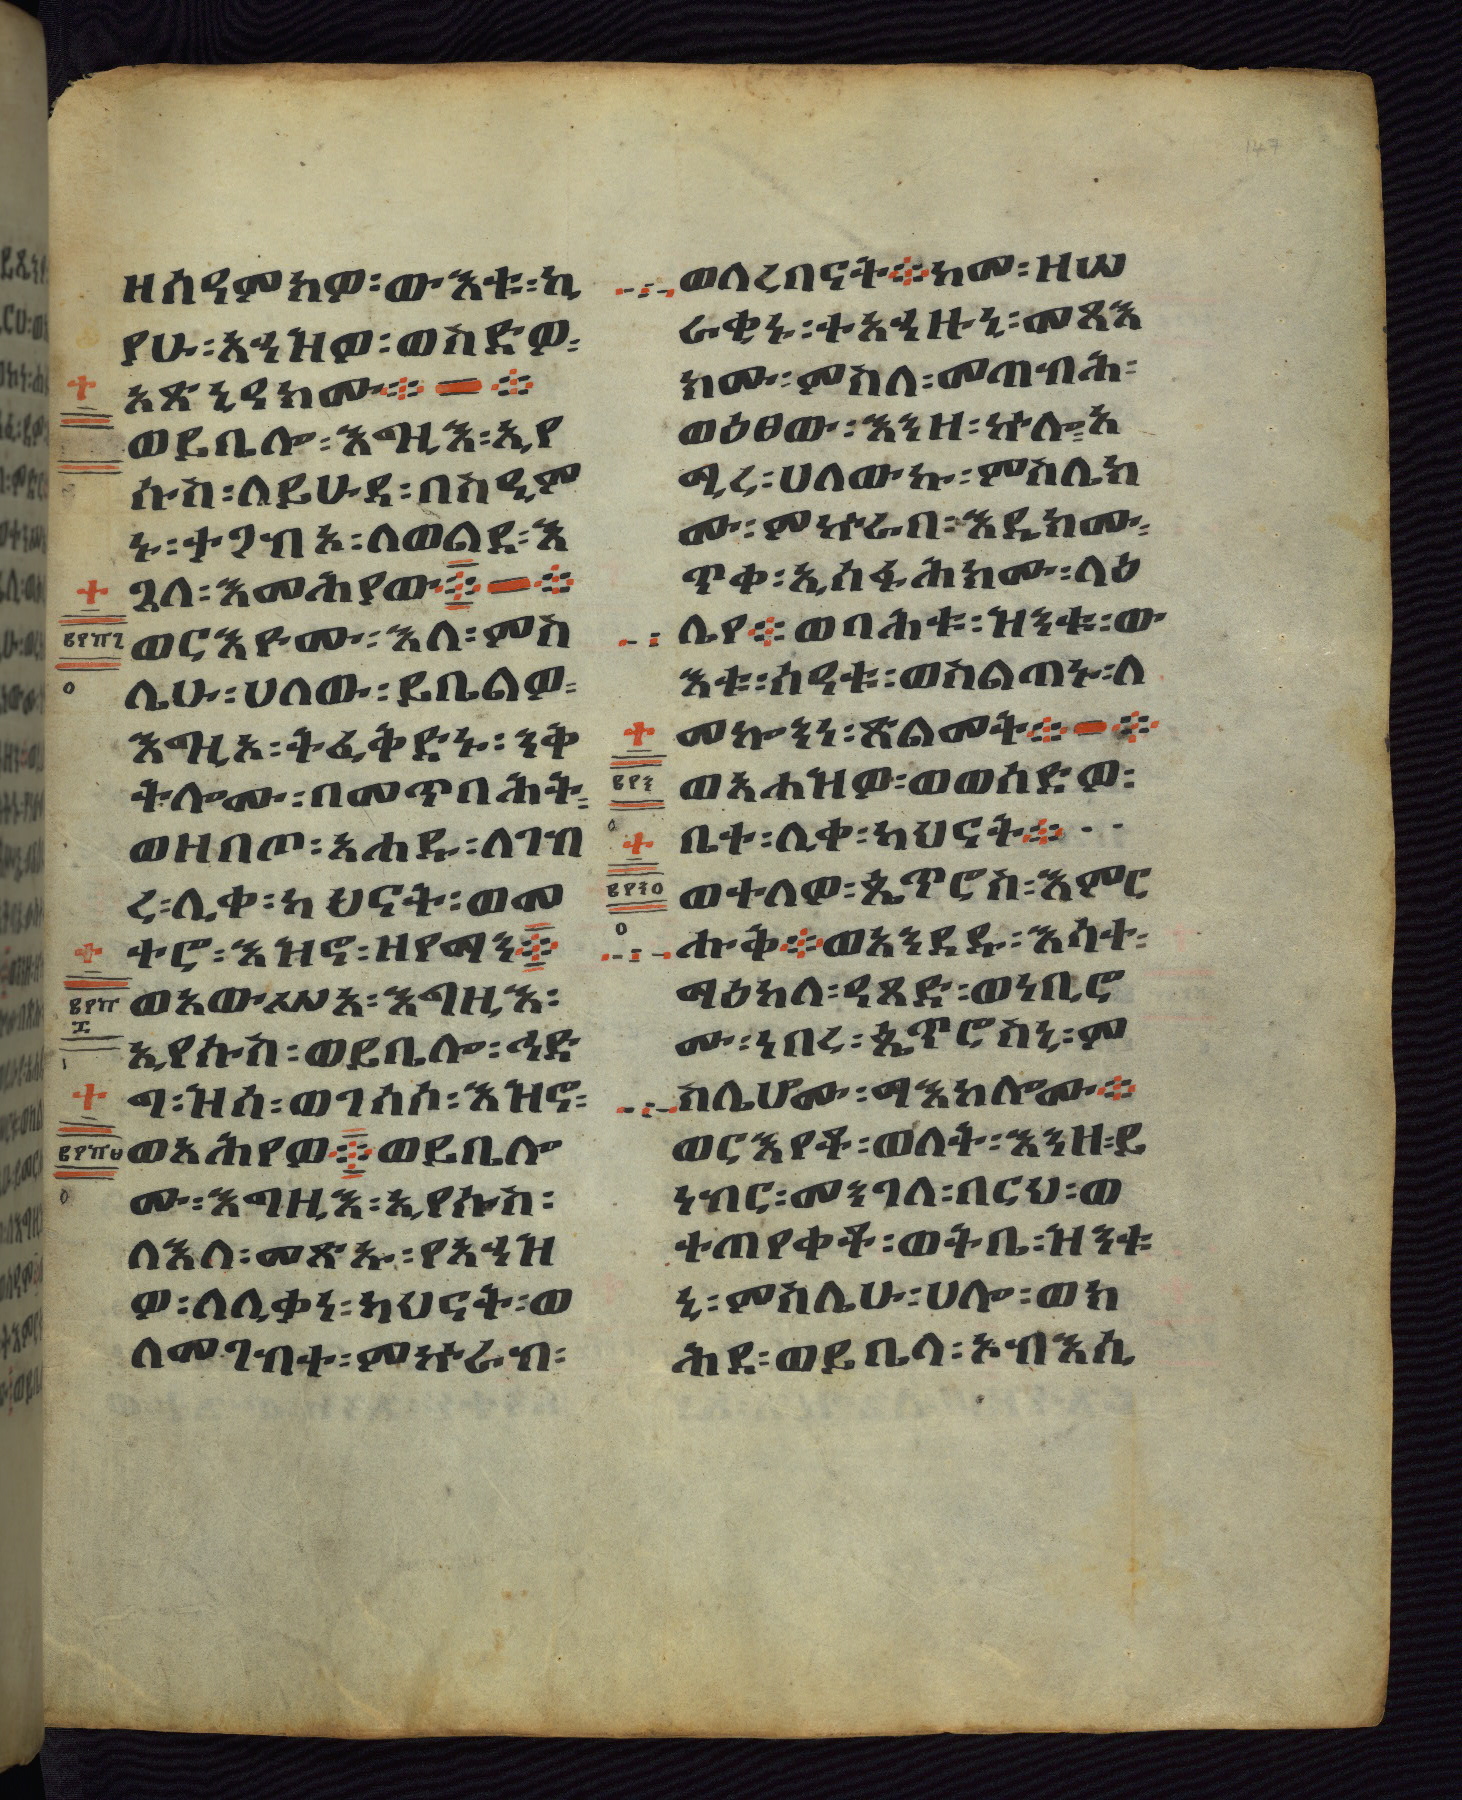 147
ዘሰዓምክዎ፡ውእቱ፡ኪ
ያሁ፡አኀዝዎ፡ወስድዎ፡
አጽኒዓክሙ፨ ፨
ወይቤሎ፡እግዚእ፡ኢየ
ሱስ፡ለይሁዳ፡በስዒም
ኑ፡ታገብኦ፡ለወልደ፡እ
ጓለ፡እመሕያው፨ ፨
ወርእዮሙ፡እለ፡ምስ
ሌሁ፡ሀለው፡ይቤልዎ፡
እግዚኦ፡ትፈቅድኑ፡ንቅ
ትሎሙ፡በመጥባሕት፡
ወዘበጦ፡አሐዱ፡ለገብ
ረ፡ሊቀ፡ካህናት፡ወመ
ተሮ፡እዝኖ፡ዘየማን፨
ወአውሥአ፡እግዚእ፡
ኢየሱስ፡ወይቤሎ፡ኅድ
ግ፡ዝሰ፡ወገሰሶ፡እዝኖ፡
ወአሕየወ፨ወይቤሎ
ሙ፡እግዚእ፡ኢየሱስ፡
ለእለ፡መጽኡ፡የአኀዝ
ዎ፡ለሊቃነ፡ካህናት፡ወ
ለመገብተ፡ምኵራብ፡
ወለረበናት፨ከመ፡ዘሠ
ራቂኑ፡ተአኀዙኒ፡መጻእ
ክሙ፡ምስለ፡መጣብሕ፡
ወዕፀው፡እንዘ፡ኵሎ፡አ
ሚረ፡ሀለውኩ፡ምስሌክ
ሙ፡ምኵራበ፡እዴክሙ፡
ጥቀ፡ኢሰፋሕክሙ፡ላዕ
ሌየ፨ወባሕቱ፡ዝንቱ፡ው
እቱ፡ሰዓቱ፡ወስልጣኑ፡ለ
መኰንነ፡ጽልመት፨ ፨
ወአሐዝዎ፡ወወሰድዎ፡
ቤተ፡ሊቀ፡ካህናት፨
ወተለዎ፡ጴጥሮስ፡እምር
ሑቅ፨ወአንደዱ፡እሳተ፡
ማዕከለ፡ዓጸድ፡ወነቢሮ
ሙ፡ነበረ፡ጴጥሮስኒ፡ም
ስሌሆሙ፡ማእከሎሙ፨
ወርእየቶ፡ወለት፡እንዘ፡ይ
ነብር፡መንገለ፡በርህ፡ወ
ተጠየቀቶ፡ወትቤ፡ዝንቱ
ኒ፡ምስሌሁ፡ሀሎ፡ወክ
ሕደ፡ወይቤላ፡ኦብእሲ